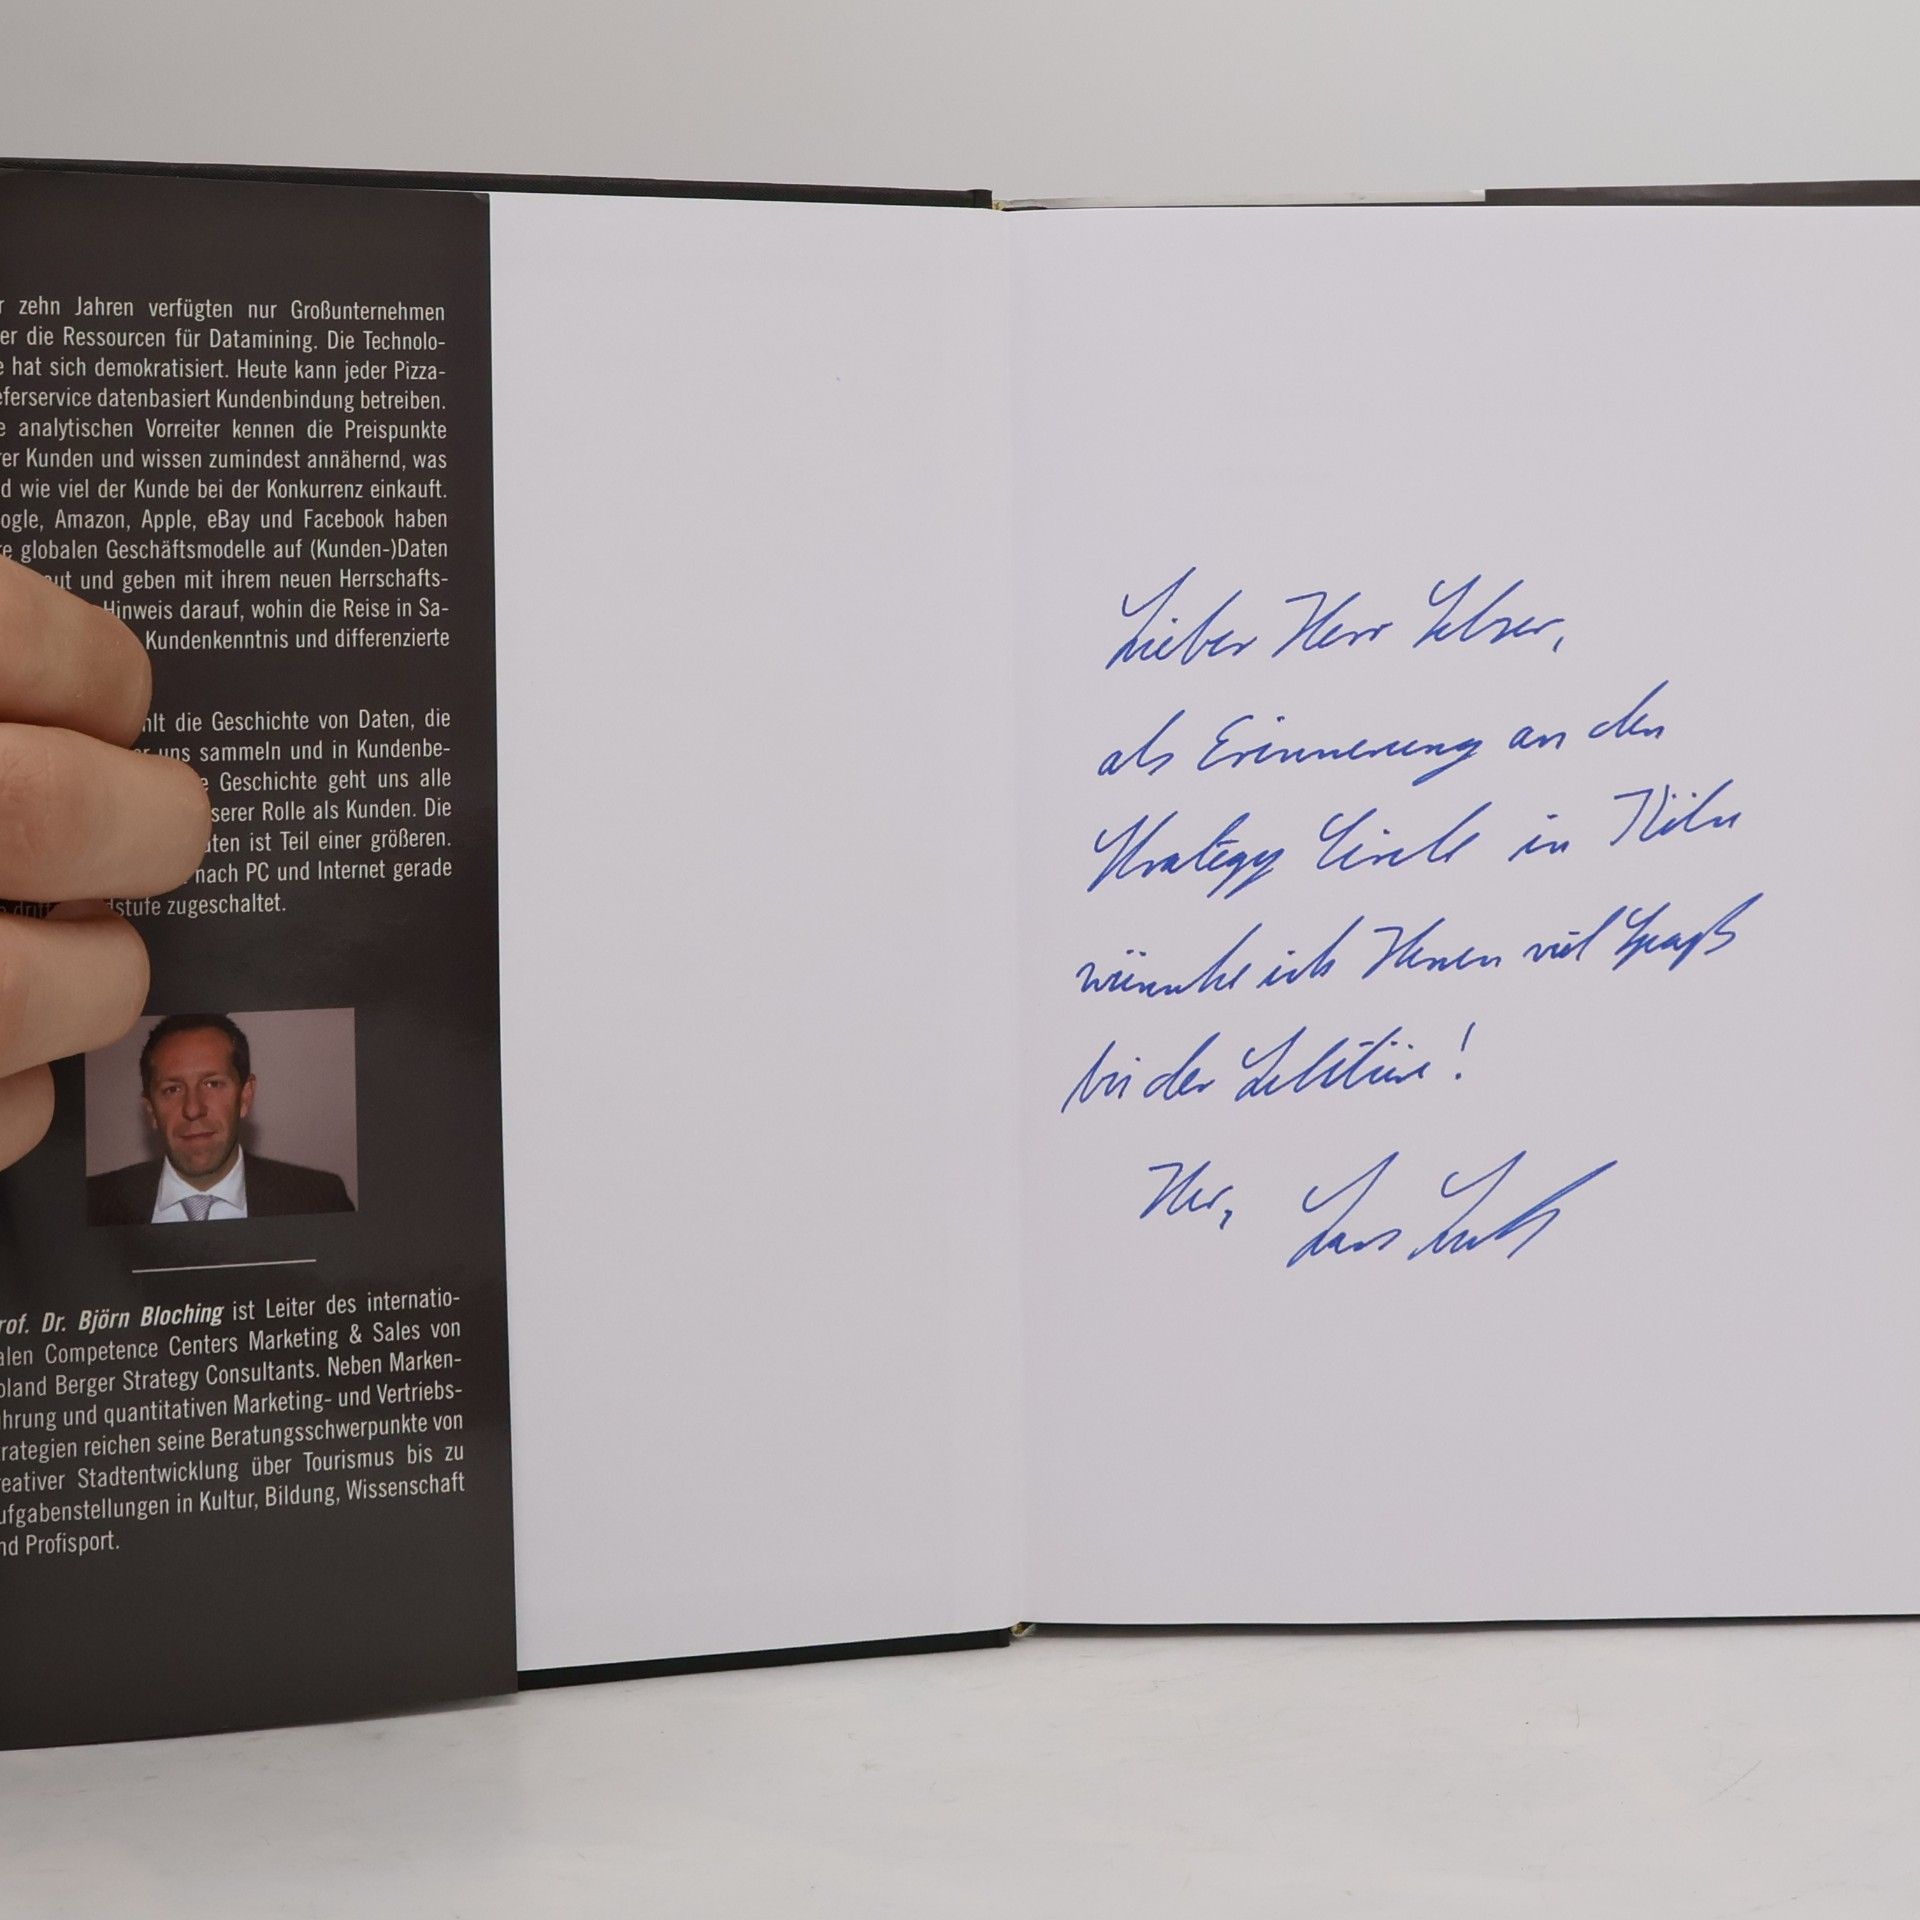 zehn Jahren verfügten nur Großunternehmen
er die Ressourcen für Datamining. Die Technolo-
e hat sich demokratisiert. Heute kann jeder Pizza-
eferservice datenbasiert Kundenbindung betreiben.
e analytischen Vorreiter kennen die Preispunkte
rer Kunden und wissen zumindest annähernd, was
d wie viel der Kunde bei der Konkurrenz einkauft.
ogle, Amazon, Apple, eBay und Facebook haben
re globalen Geschäftsmodelle auf (Kunden-)Daten
ut und geben mit ihrem neuen Herrschafts-
Hinweis darauf, wohin die Reise in Sa-
Kundenkenntnis und differenzierte
hlt die Geschichte von Daten, die
er uns sammeln und in Kundenbe-
e Geschichte geht uns alle
serer Rolle als Kunden. Die
aten ist Teil einer größeren.
nach PC und Internet gerade
dstufe zugeschaltet.
rof. Dr. Björn Bloching ist Leiter des internatio-
alen Competence Centers Marketing & Sales von
oland Berger Strategy Consultants. Neben Marken-
hrung und quantitativen Marketing- und Vertriebs-
rategien reichen seine Beratungsschwerpunkte von
reativer Stadtentwicklung über Tourismus bis zu
ufgabenstellungen in Kultur, Bildung, Wissenschaft
nd Profisport.
Lieber Herr
als Erinnerung an den
Strategy Circle in Köln
wünsche ich Ihnen viel Spaß
bei der Lektüre!
Ihr, Lars